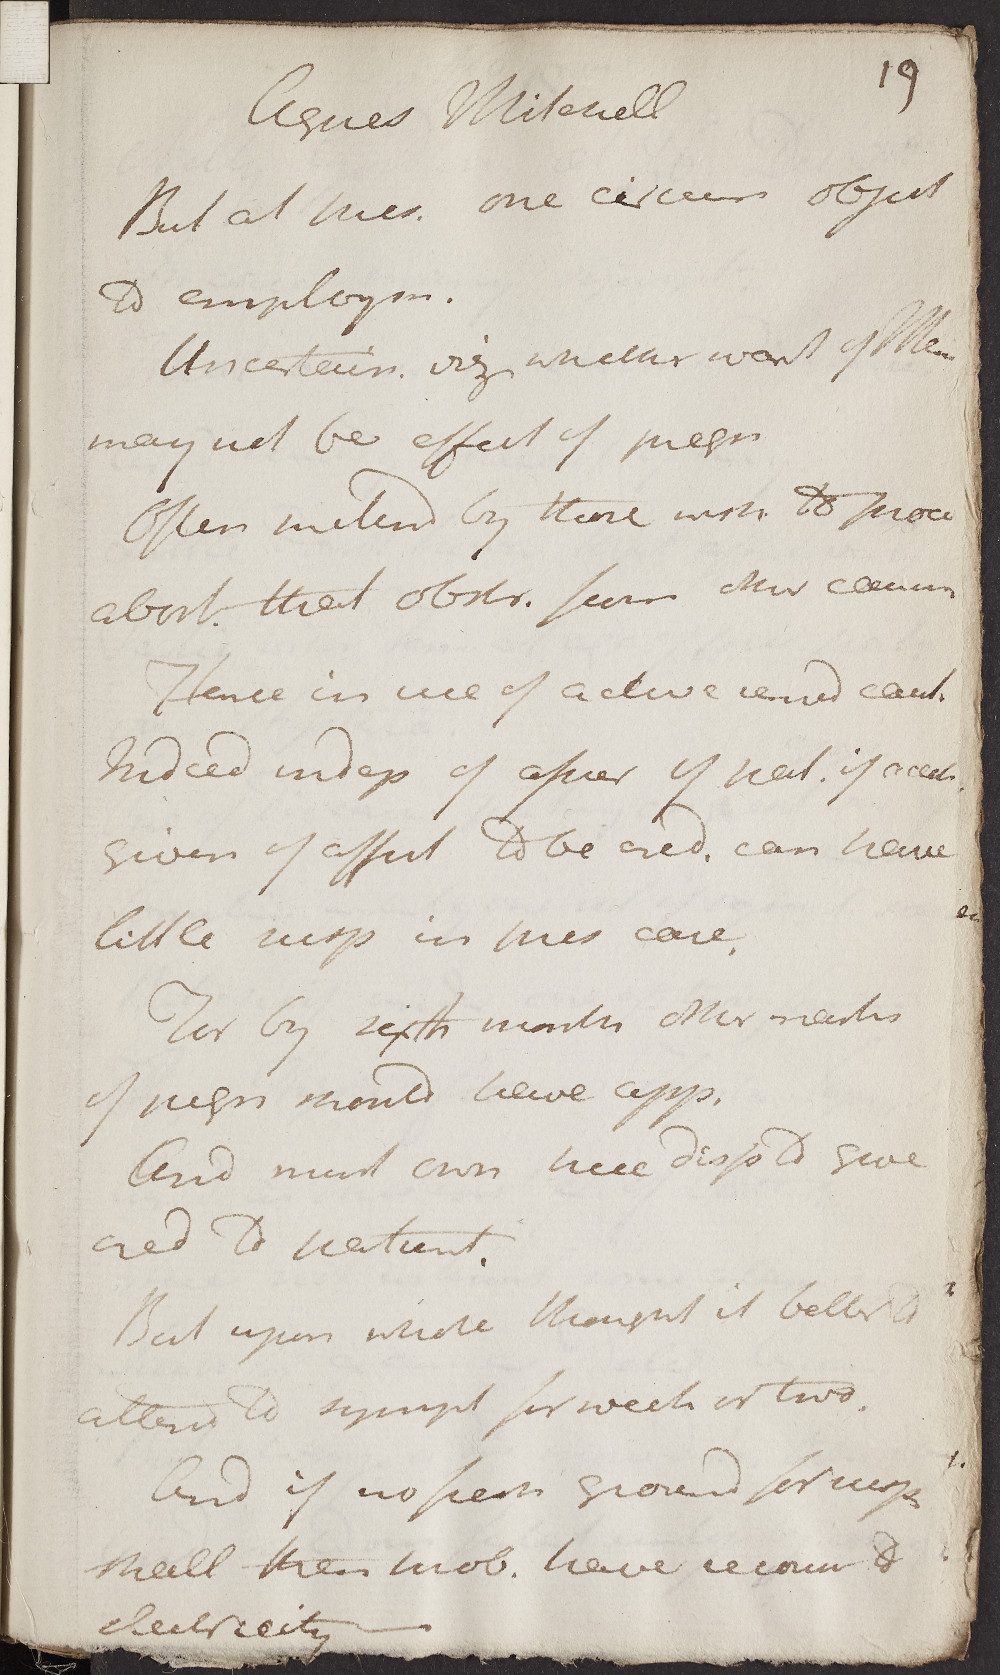 19
Agnes Mitchell
But at pres. one circum object
to employm.
Uncertain. viz whether want of Men
may not be effect of pregn
Often pretend by those wish to procu
abort. that obstr. from other caus
Hence in use of active remed caut.
Indeed indep of asser of pat. if acct
given of affect to be cred. can have
little susp in pres case.
For by sixth month other marks
of pregn should have app.
And must own here disp to give
cred to patient.
But upon whole thought it better to
attend to sympt for week or two.
And if no fresh ground for susp
shall then prob. have recour to
electricity